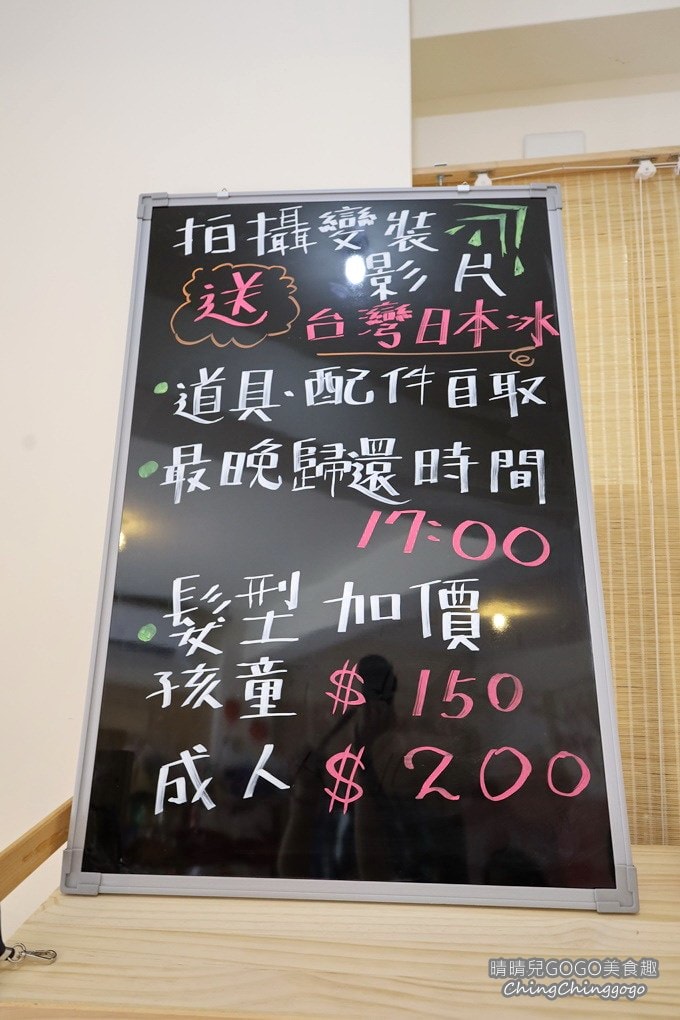 拍攝變裝
影片
送 台灣日本冰
道具、配件自取
最晚歸還時間
17:00
髮型 加價
孩童 $ 150
成人 $ 200
晴晴兒GOGO美食趣
ChingChinggogo